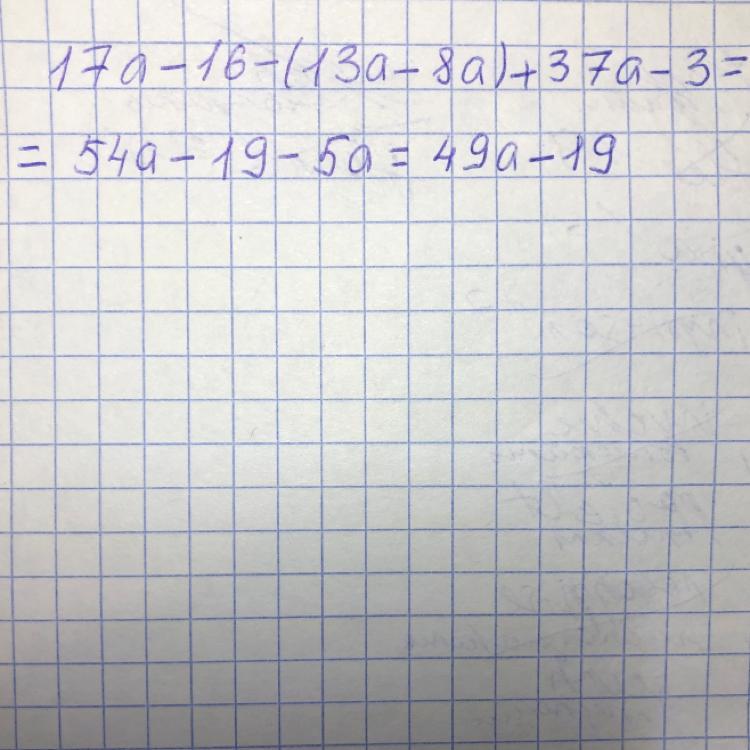 17a-16-(13a-8a)+37a-3=
= 54a-19-5a= 49a-19